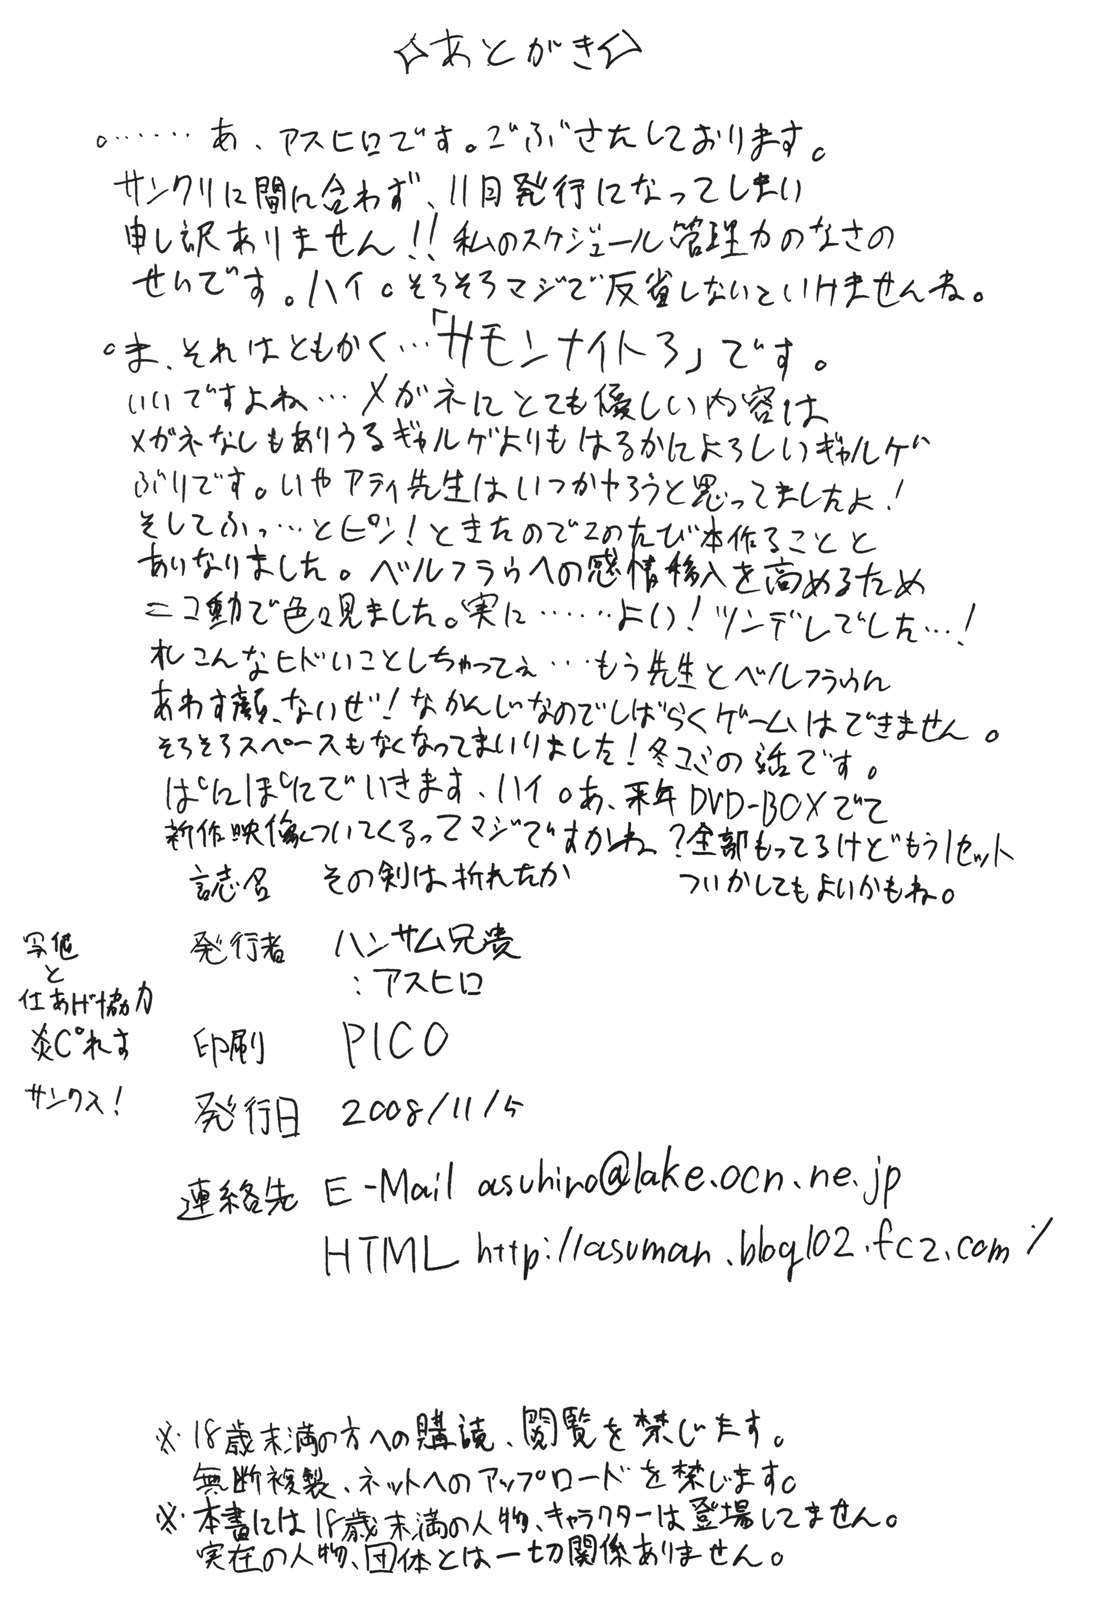 ☆あとがき☆
○……あ、アスヒロです。ごぶさたしております。
サンクリに間に合わず、11月発行になってしまい
申し訳ありません!!私のスケジュール管理力のなさの
せいです。ハイ。そろそろマジで反省しないといけませんね。
○ま、それはともかく…「サモンナイト3」です。
いいですよね…メガネにとても優しい内容は
メガネなしもありうるギャルゲよりもはるかによろしいギャルゲ
ぶりです。いやアティ先生はいつかやろうと思ってましたよ!
そしてふっ…とピン!ときたのでこのたび本作ることと
あいなりました。ベルフラウへの感情移入を高めるため
ニコ動で色々見ました。実に……よい!ツンデレでした…!
こんなヒドいことしちゃってぇ…もう先生とベルフラウに
あわす顔、ないぜ!なかんじなのでしばらくゲームはできません。
そろそろスペースもなくなってまいりました!冬コミの話です。
ぱにぽにでいきます、ハイ。あ、来年DVD-BOXでて
新作映像ついてくるってマジですかね?全部もってるけどもう1セット
ついかしてもよいかもね。
誌名 その剣は折れたか
発行者 ハンサム兄貴
:アスヒロ
写植
と
仕あげ協力
炎ぴれす
サンクス!
印刷 PICO
発行日 2008/11/5
連絡先 E-Mail asuhiro@lake.ocn.ne.jp
HTML http://asuman.blog102.fc2.com/
※18歳未満の方への購読、閲覧を禁じます。
無断複製、ネットへのアップロードを禁じます。
※本書には18歳未満の人物、キャラクターは登場してません。
実在の人物、団体とは一切関係ありません。